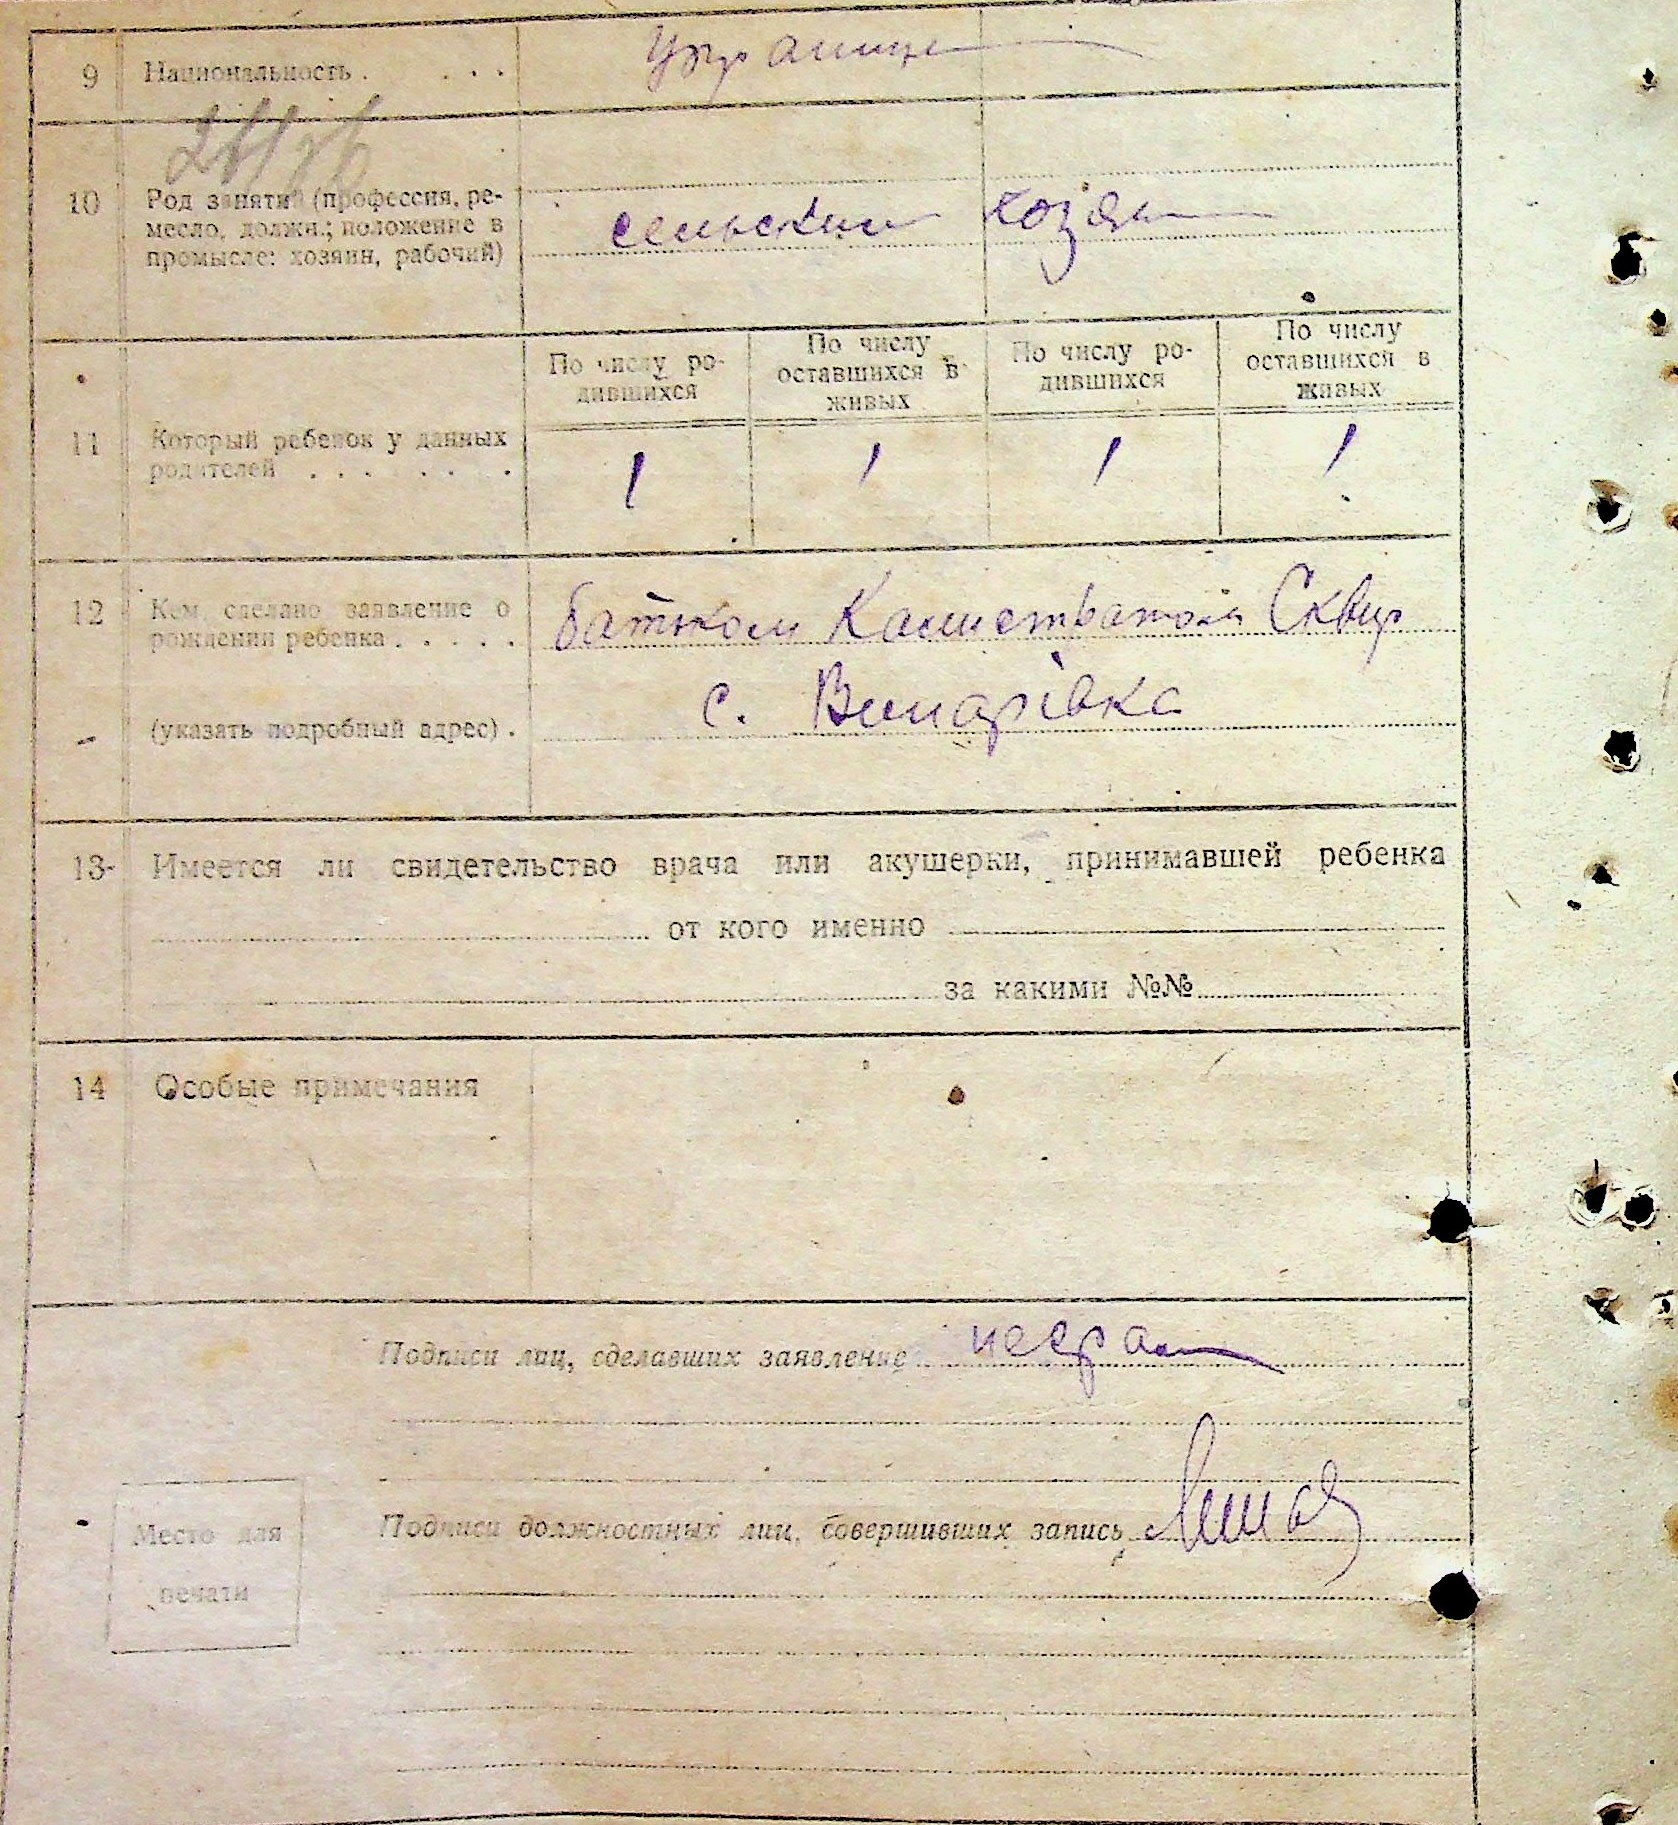 9 Национальность . . . . Украинце
10 Род занятий (профессия, ре-
месло, должн.; положение в
промысле: хозяин, рабочий)
сельский хозяин
По числу ро-
дившихся
По числу
оставшихся в
живых
По числу ро-
дившихся
По числу
оставшихся в
живых
11 Который ребенок у данных
родителей . . . . . . .
1 1 1 1
12 Кем сделано заявление о
рождении ребенка . . . . .
батьком Калистратом Сквир
(указать подробный адрес) .
с. Винарівка
13 Имеется ли свидетельство врача или акушерки, принимавшей ребенка
от кого именно
за какими №№
14 Особые примечания
Подписи лиц, сделавших заявление неграм
Подписи должностных лиц, совершивших запись
Место для
печати